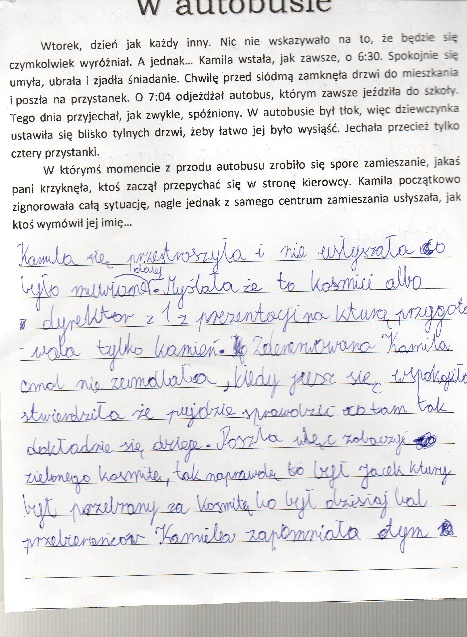 w autobusie
Wtorek, dzień jak każdy inny. Nic nie wskazywało na to, że będzie się
czymkolwiek wyróżniał. A jednak... Kamila wstała, jak zawsze, o 6:30. Spokojnie się
umyła, ubrała i zjadła śniadanie. Chwilę przed siódmą zamknęła drzwi do mieszkania
i poszła na przystanek. O 7:04 odjeżdżał autobus, którym zawsze jeździła do szkoły.
Tego dnia przyjechał, jak zwykle, spóźniony. W autobusie był tłok, więc dziewczynka
ustawiła się blisko tylnych drzwi, żeby łatwo jej było wysiąść. Jechała przecież tylko
cztery przystanki.
W którymś momencie z przodu autobusu zrobiło się spore zamieszanie, jakaś
pani krzyknęła, ktoś zaczął przepychać się w stronę kierowcy. Kamila początkowo
zignorowała całą sytuację, nagle jednak z samego centrum zamieszania usłyszała, jak
ktoś wymówił jej imię...
Kamila się przestroszyła i nie usłyszała co
dalej
było muwiane. Myślała że to kosmici albo
dyrektor z 1 z prezentacji na kturą przygoto
wała tylko kamień. Zdenerwowana Kamila
omal nie zemdlała, kiedy jusz się uspokojiła
stwierdziła że pujdzie sprawdzić co tam tak
dokładnie się dzieje. Poszła więc zobaczyć
zielonego kosmitę, tak naprawdę to był jacek ktury
był przebrany za kosmitę bo był dzisiaj bal
przebierańców Kamila zapomniała o tym